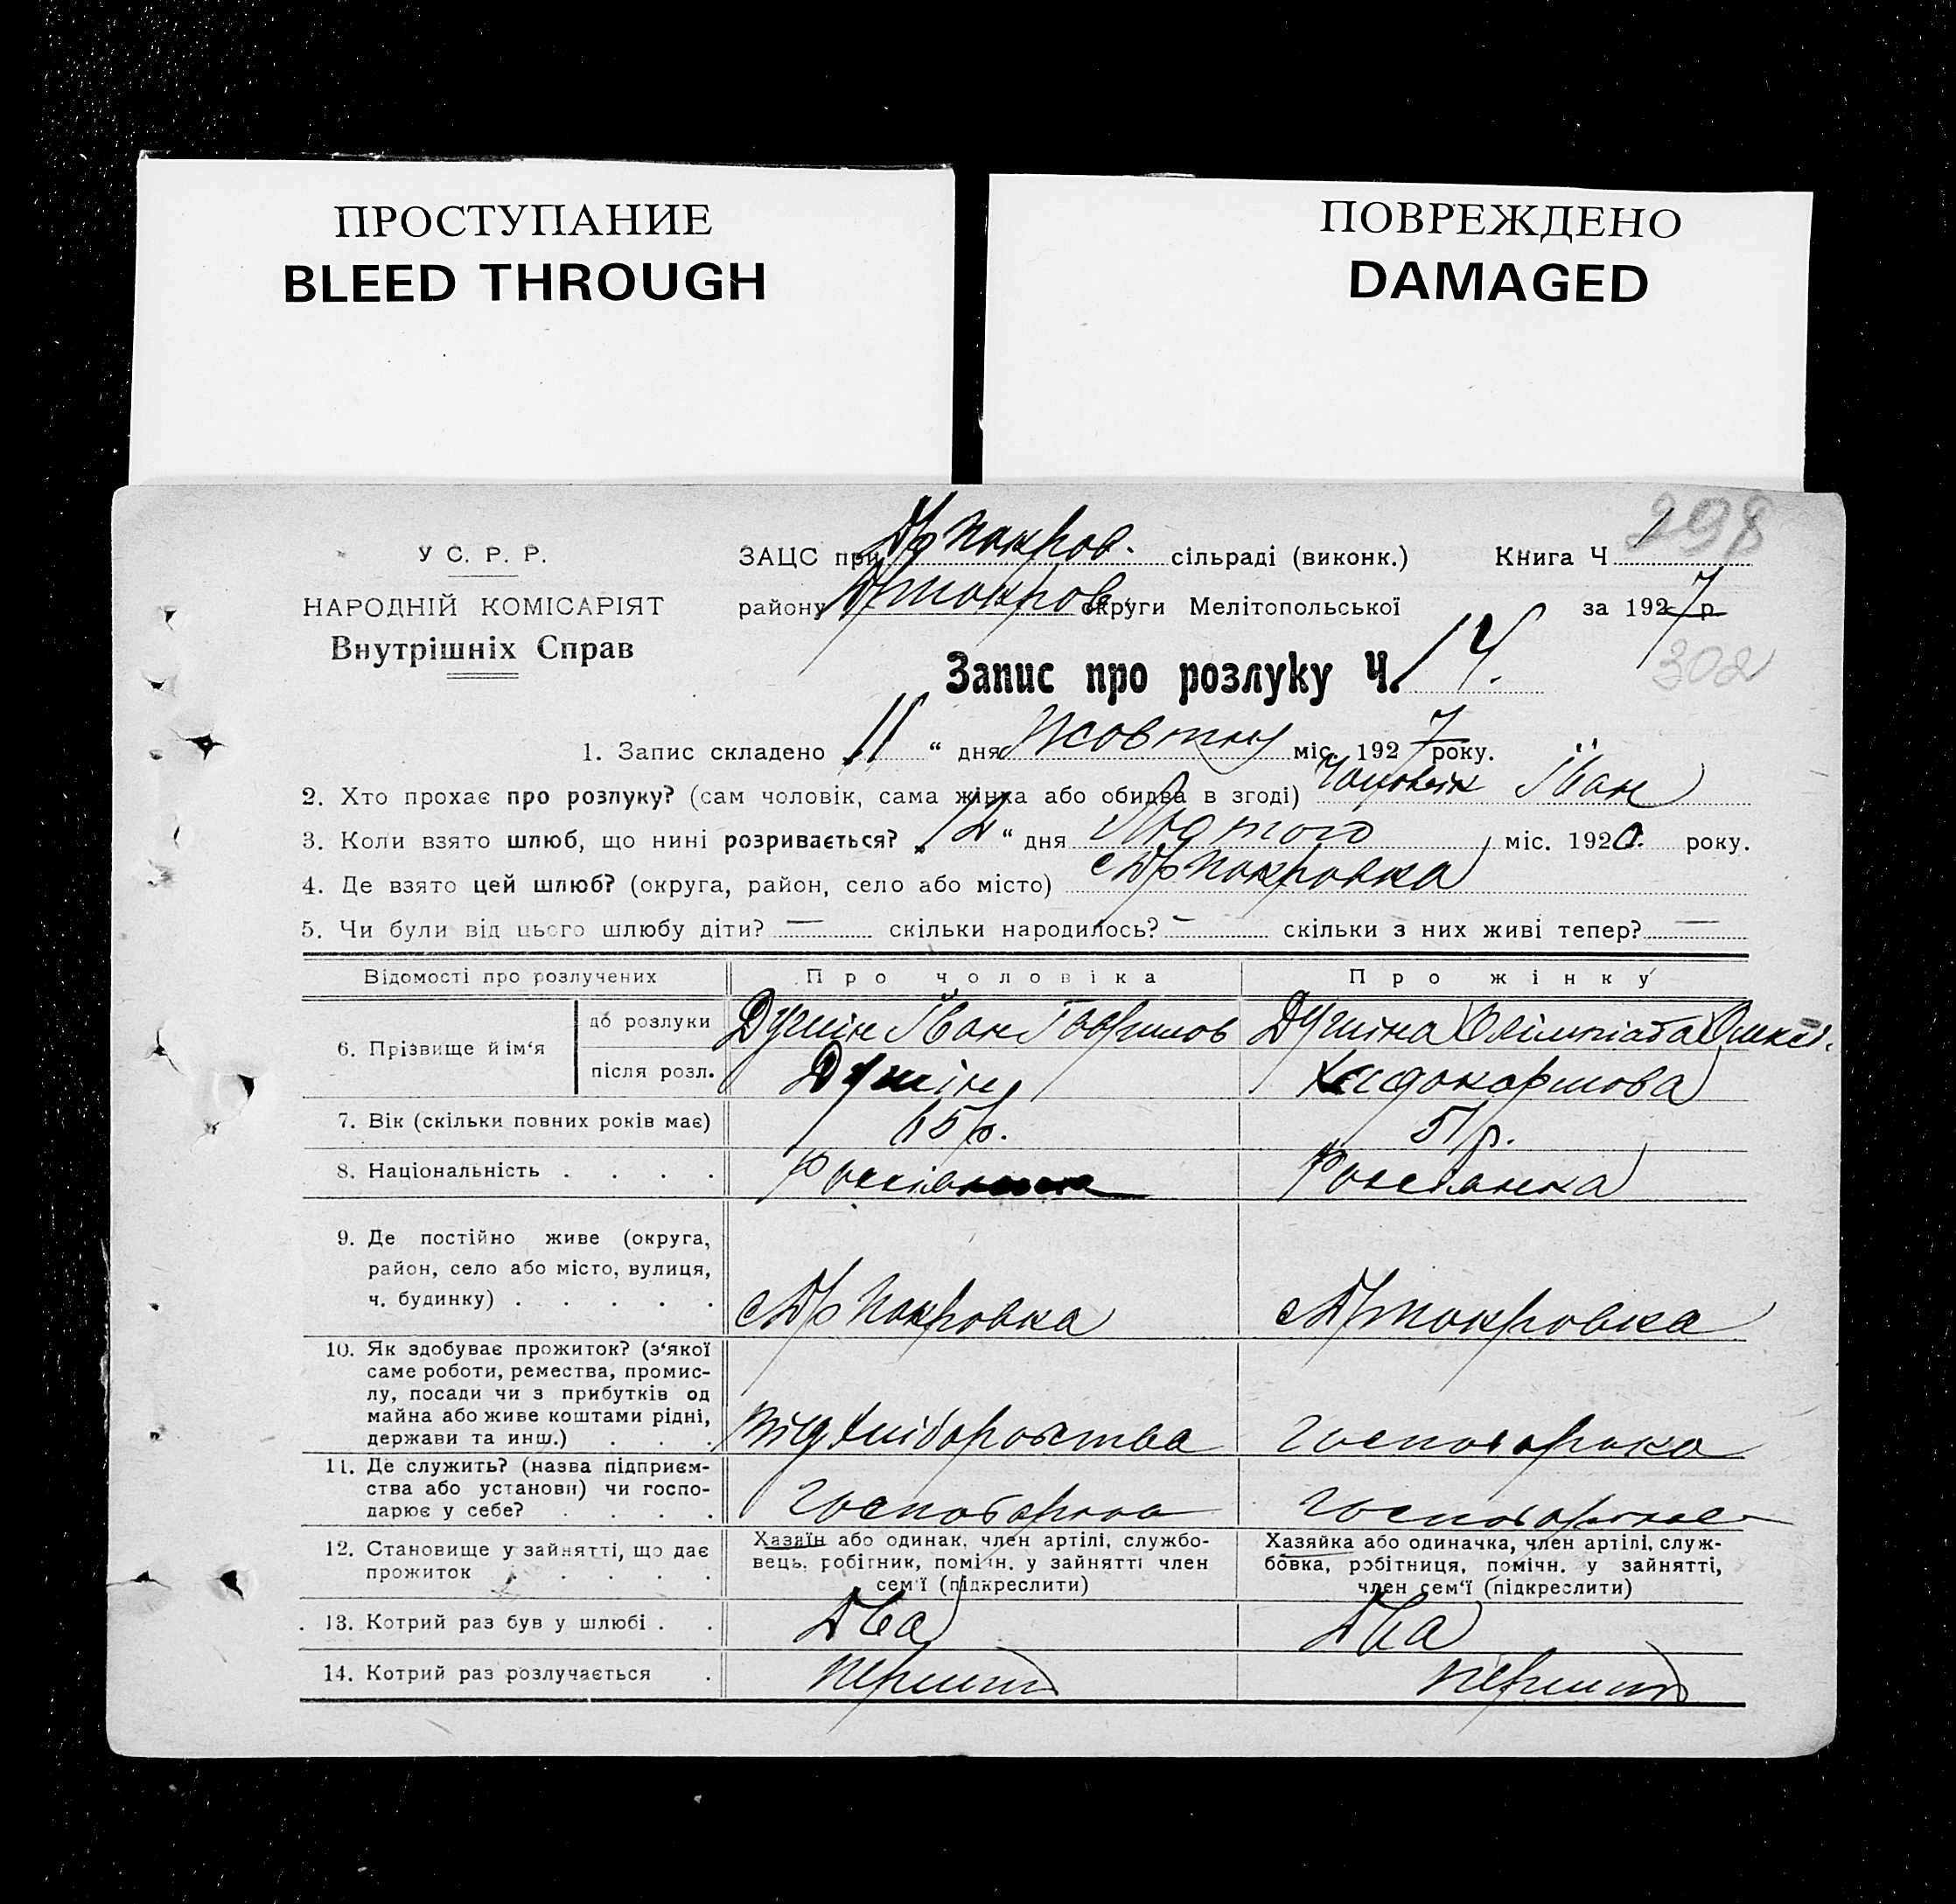 ПРОСТУПАНИЕ
BLEED THROUGH
ПОВРЕЖДЕНО
DAMAGED
298
У С. Р. Р.
НАРОДНІЙ КОМІСАРІЯТ
Внутрішніх Справ
ЗАЦС при Др Покров. сільраді (виконк.) Книга Ч. 1
району Дрпокров. округи Мелітопольської за 1927 р.
302
Запис про розлуку Ч. 14.
1. Запис складено „ 11 “ дня Жовтня міс. 1927 року.
2. Хто прохає про розлуку? (сам чоловік, сама жінка або обидва в згоді) Чоловік Іван
3. Коли взято шлюб, що нині розривається? „ 12 “ дня Лютого міс. 1920. року.
4. Де взято цей шлюб? (округа, район, село або місто) с Др Покровка
5. Чи були від цього шлюбу діти? — скільки народилось? — скільки з них живі тепер? —
Відомості про розлучених
Про чоловіка
Про жінку
6. Прізвище й ім‘я
до розлуки
Душін Іван Гаврилов
Душіна Олімпіада Олекс.
після розл.
Душін
7. Вік (скільки повних років має)
65 р.
51 р.
8. Національність . . . .
Россіян
Россіянка
9. Де постійно живе (округа,
район, село або місто, вулиця,
ч. будинку) . . . . .
с Др Покровка
с Дрпокровка
10. Як здобуває прожиток? (з‘якої
саме роботи, ремества, промис-
лу, посади чи з прибутків од
майна або живе коштами рідні,
держави та инш.) . . .
від хліборобства
господарка
11. Де служить? (назва підприєм-
ства або установи) чи госпо-
дарює у себе? . . . .
12. Становище у зайнятті, що дає
прожиток . . . . .
Хазяїн або одинак, член артілі, службо-
вець, робітник, помічн. у зайнятті член
сем‘ї (підкреслити)
Хазяйка або одиначка, член артілі, служ-
бовка, робітниця, помічн. у зайнятті,
член сем‘ї (підкреслити)
13. Котрий раз був у шлюбі . .
Два
Два
14. Котрий раз розлучається .
перший
перший